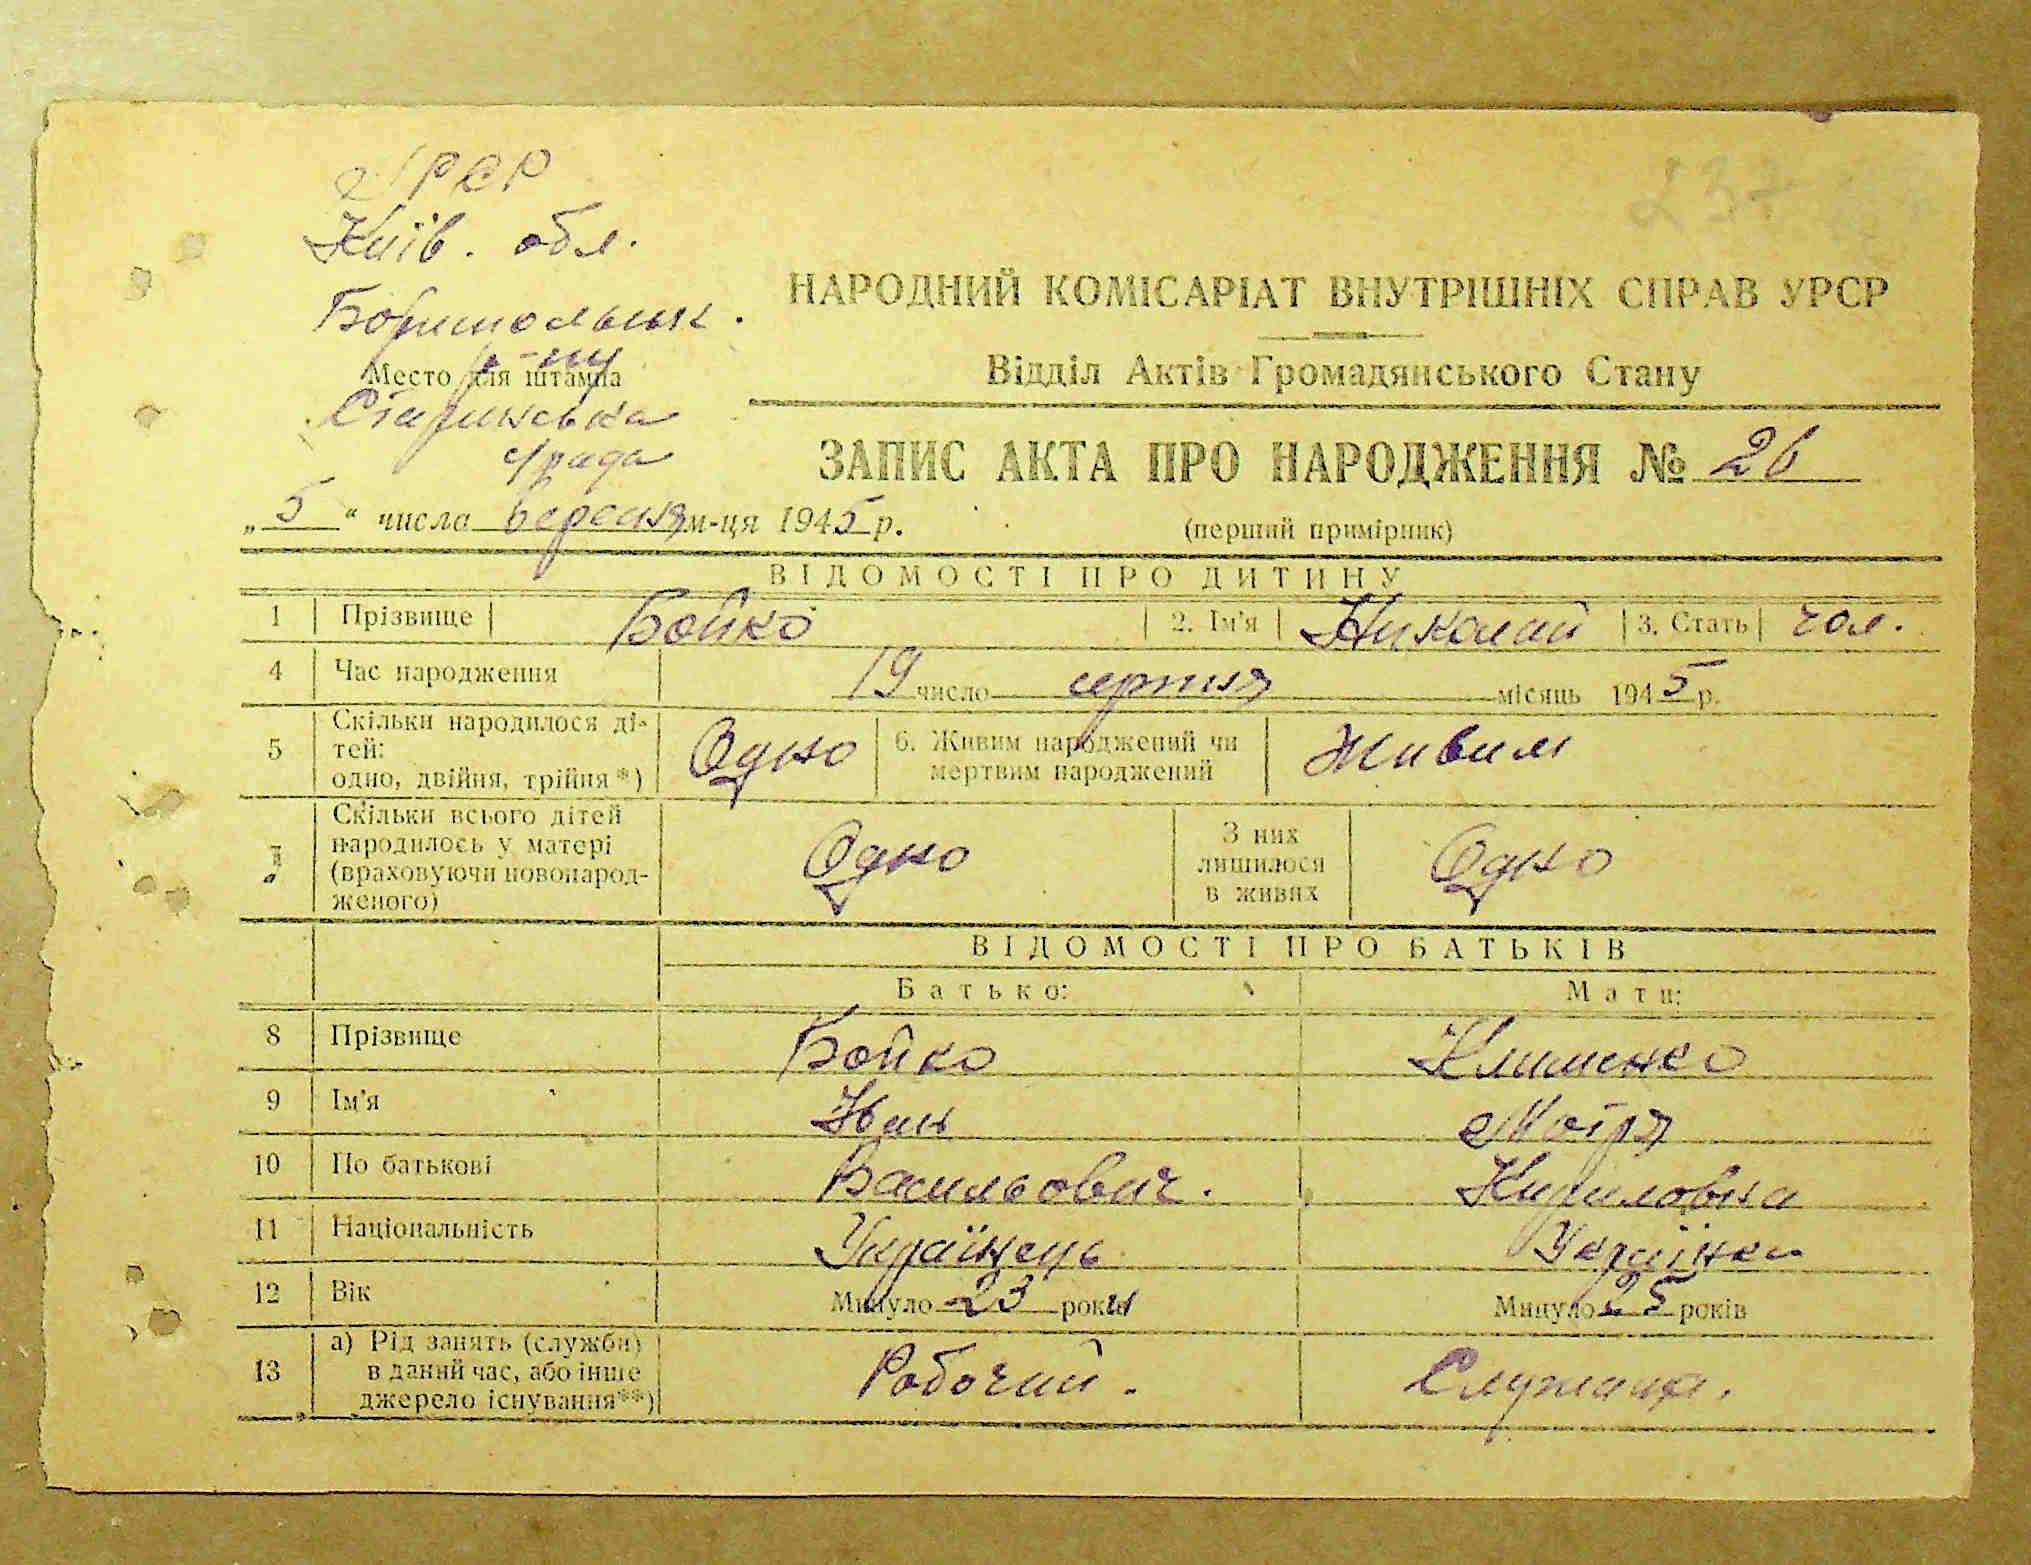 УРСР
Київ. обл.
Бориспольськ.
р-ну
Место для штампа
Старинська
с/рада
„5“ числа вересня м-ця 1945 р.
237
НАРОДНИЙ КОМІСАРІАТ ВНУТРІШНІХ СПРАВ УРСР
Відділ Актів Громадянського Стану
ЗАПИС АКТА ПРО НАРОДЖЕННЯ № 26
(перший примірник)
ВІДОМОСТІ ПРО ДИТИНУ
1 Прізвище Бойко 2. Ім'я Николай 3. Стать чол.
4 Час народження 19 число серпня місяць 1945 р.
5 Скільки народилося ді-
тей:
одно, двійня, трійня *) Одно 6. Живим народжений чи
мертвим народжений Живим
7 Скільки всього дітей
народилось у матері
(враховуючи новонарод-
женого) Одно З них
лишилося
в живих Одно
ВІДОМОСТІ ПРО БАТЬКІВ
Батько: Мати:
8 Прізвище Бойко Клименко
9 Ім'я Іван Мотря
10 По батькові Васильович. Кириловна
11 Національність Українець Українка
12 Вік Минуло 23 роки Минуло 25 років
13 а) Рід занять (служби)
в даний час, або інше
джерело існування**) Робочий. Служаща.